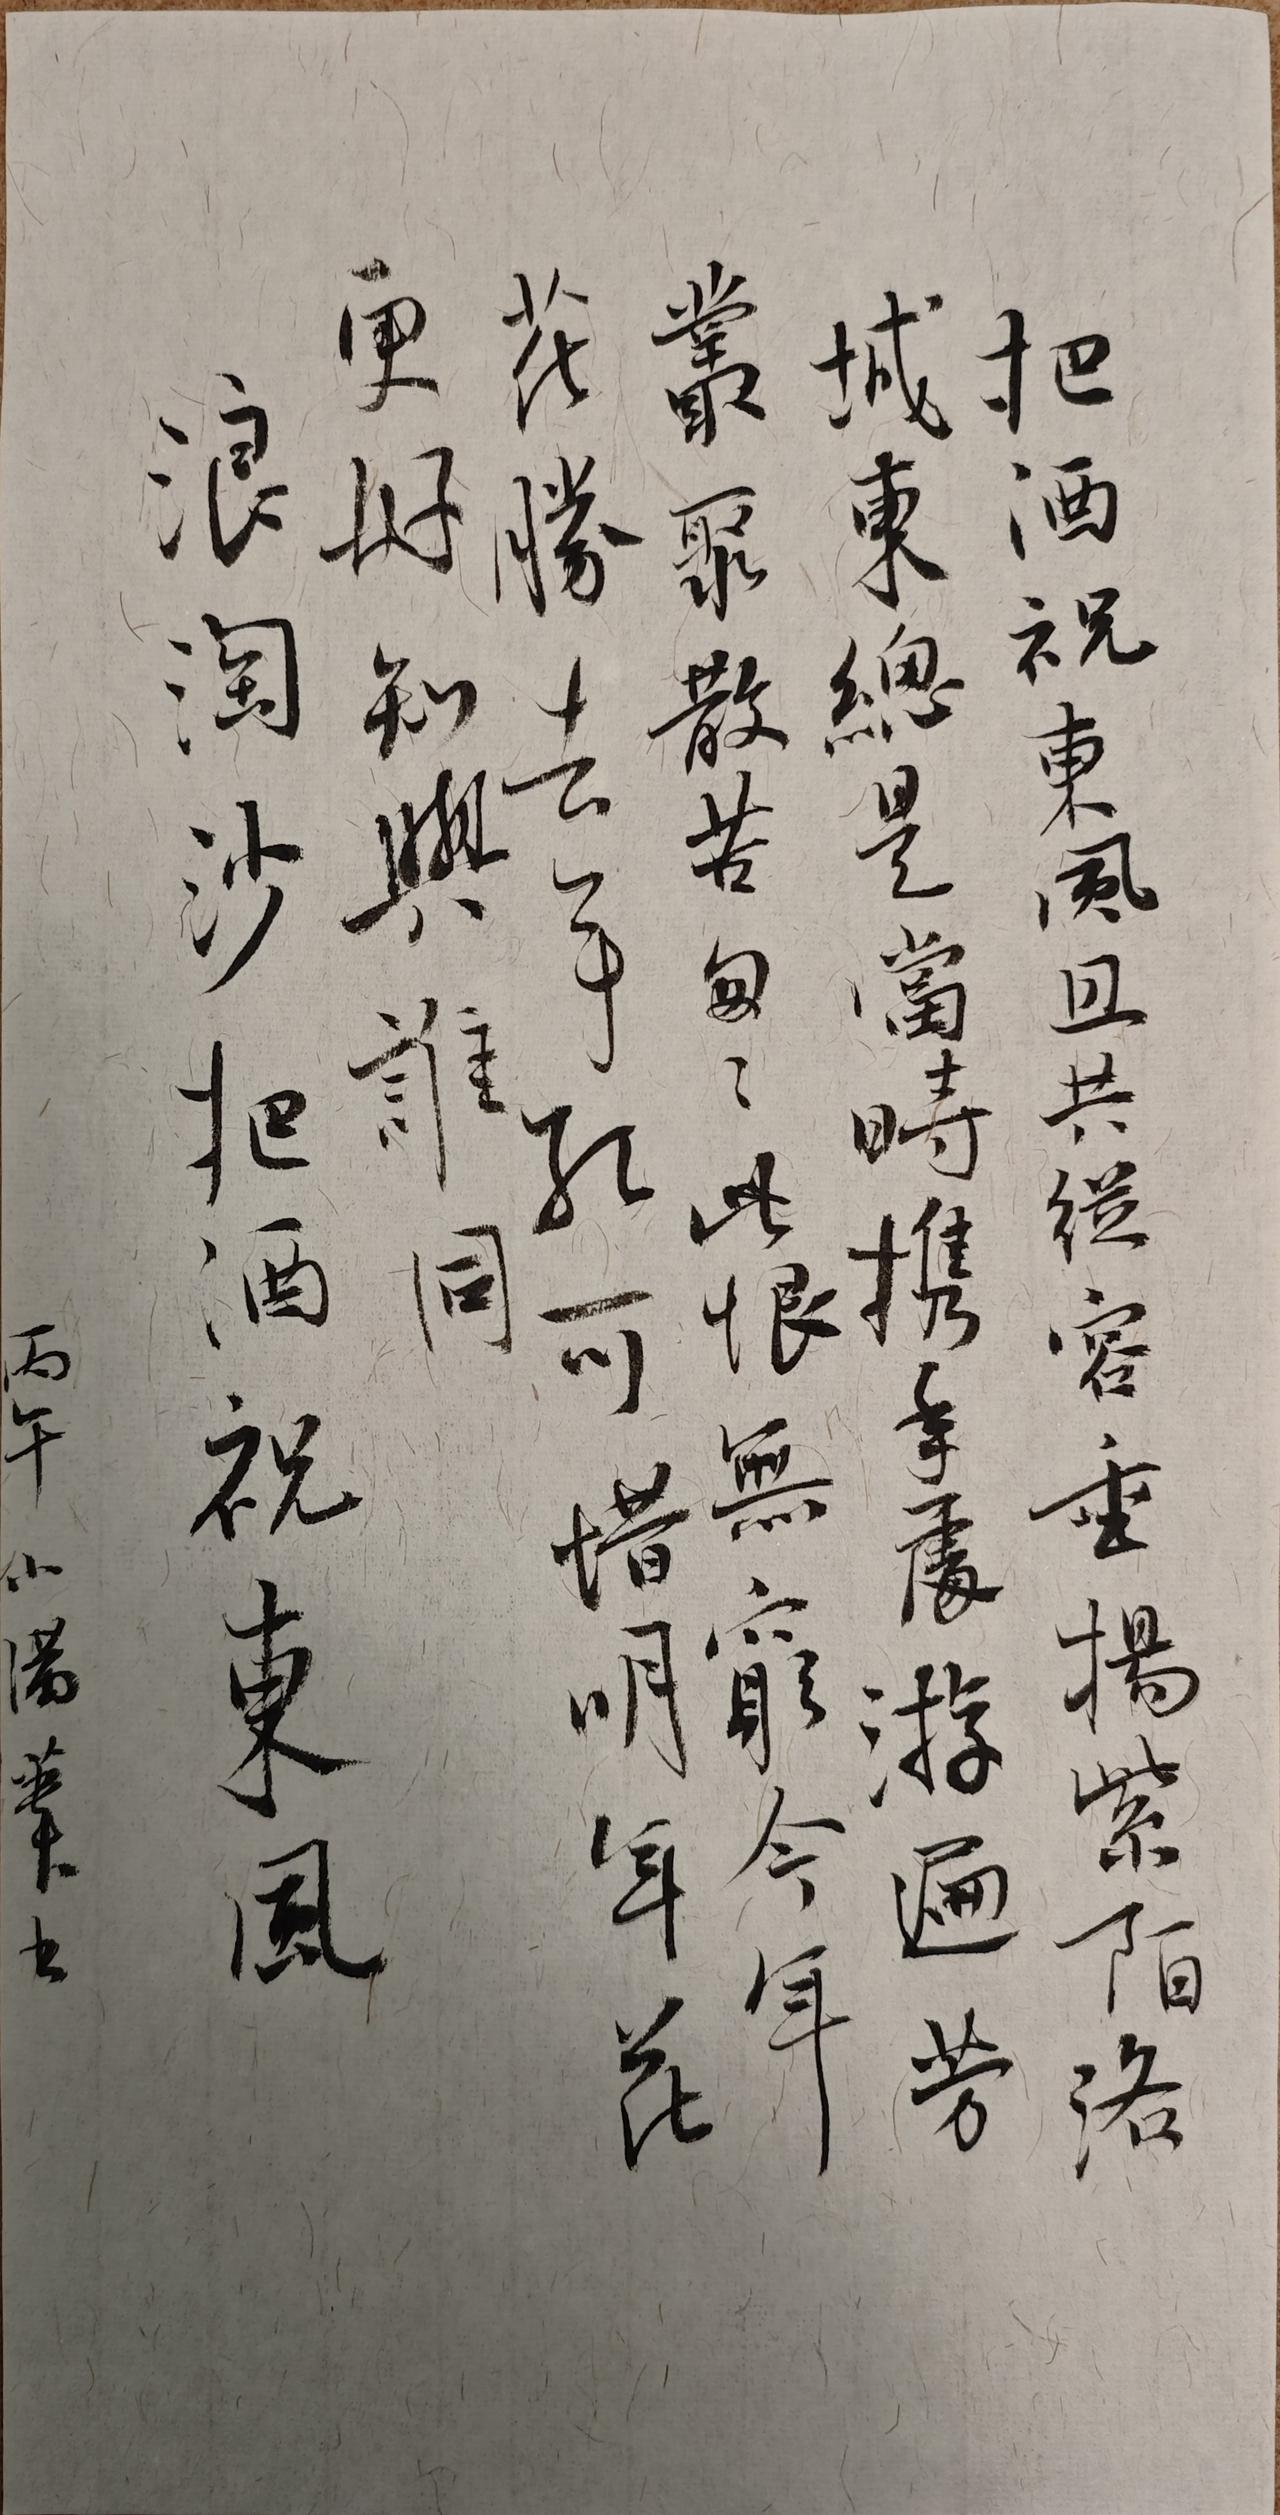 把酒祝東風且共從容垂楊紫陌洛
城東總是當時携手處游遍芳
叢聚散苦匆〻此恨無窮今年
花勝去年紅可惜明年花
更好知與誰同
浪淘沙把酒祝東風
丙午小滿華书